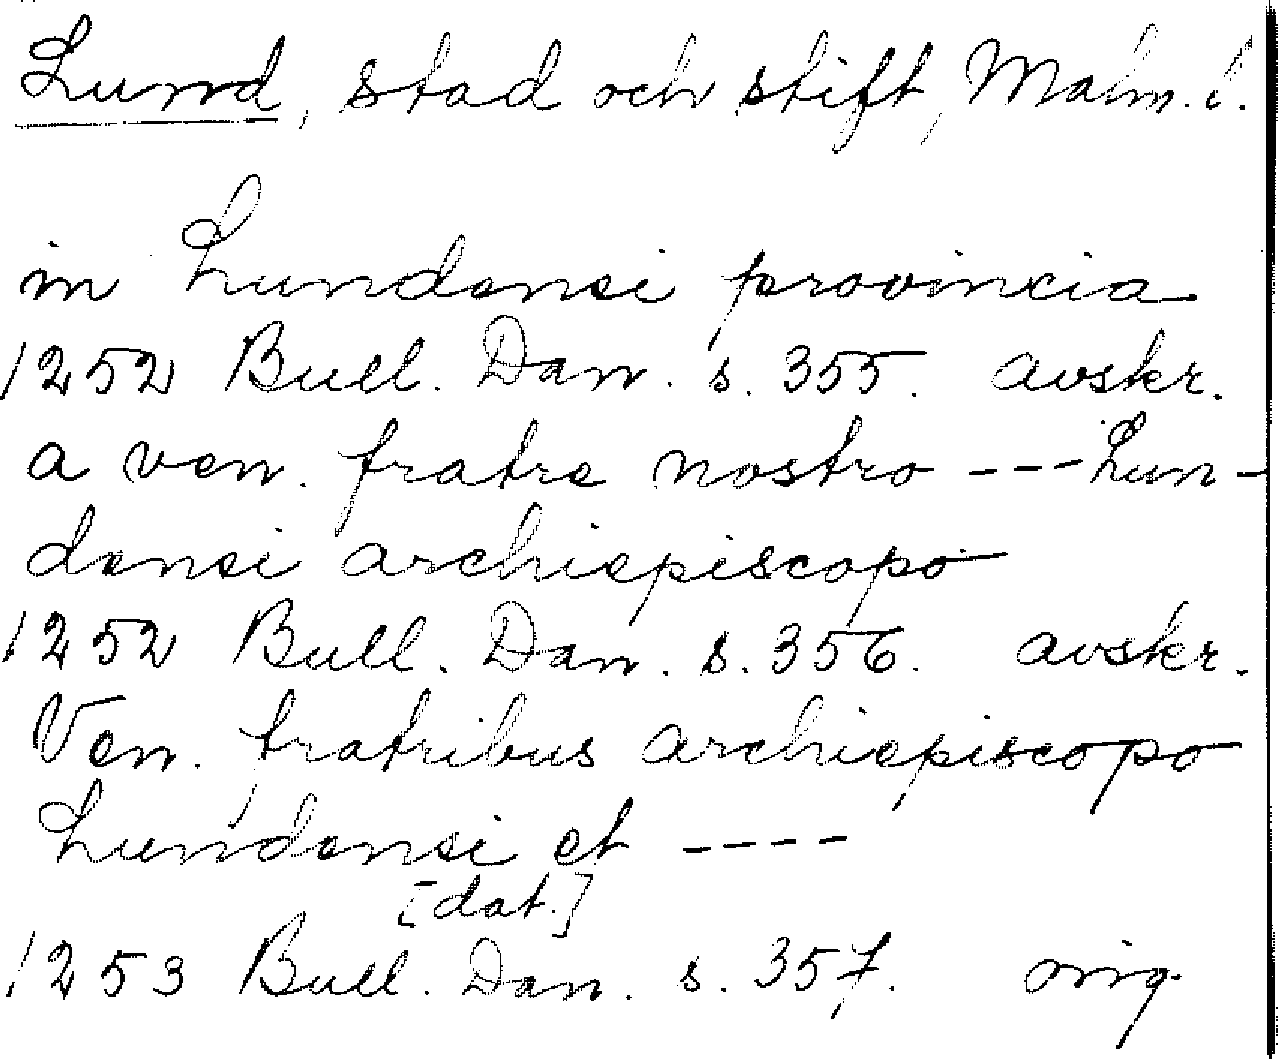 Lund, stad och stift, Malm. l.
in Lundensi provincia
1252 Bull. Dan. s. 355. avskr.
a ven. fratre nostro --- Lun-
densi archiepiscopo
1252 Bull. Dan. s. 356. avskr.
Ven. fratribus archiepiscopo
Lundensi et ----
[dat.]
1253 Bull. Dan. s. 357. orig.